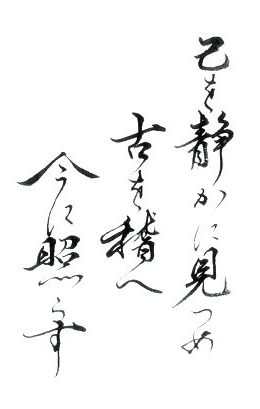 己を静かに見つめ
古を稽へ
今に照らす